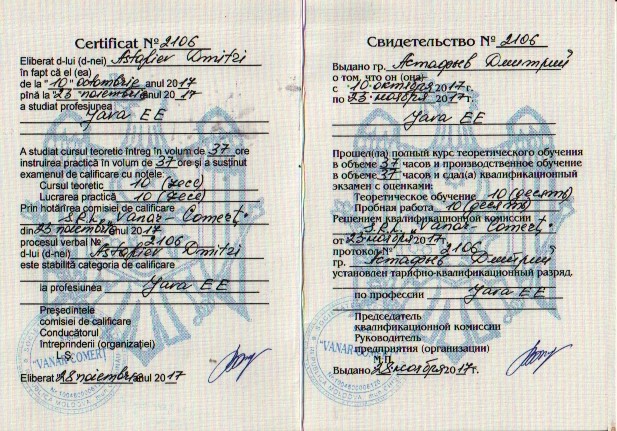 Certificat № 2106
Eliberat d-lui (d-nei) Astafiev Dmitri
în fapt că el (ea)
de la "10" octombrie anul 2017
pînă la "23" noiembrie anul 2017
a studiat profesiunea
Java EE
A studiat cursul teoretic întreg în volum de 37 ore
instruirea practică în volum de 37 ore și a susținut
examenul de calificare cu notele:
Cursul teoretic 10 (zece)
Lucrarea practică 10 (zece)
Prin hotărîrea comisiei de calificare
S.R.L. "Vanar-Comerț"
din 23 noiembrie anul 2017
procesul verbal № 2106
d-lui (d-nei) Astafiev Dmitri
este stabilită categoria de calificare
la profesiunea Java EE
Președintele
comisiei de calificare
Conducătorul
Întreprinderii (organizației)
L.Ș.
"VANAR-COMERȚ"
Eliberat 28 noiembrie anul 2017
Свидетельство № 2106
Выдано гр. Астафьев Дмитрий
о том, что он (она)
с "10" октября 2017 г.
по 23 ноября 2017 г.
Java EE
Прошел(ла) полный курс теоретического обучения
в объеме 37 часов и производственное обучение
в объеме 37 часов и сдал(а) квалификационный
экзамен с оценками:
Теоретическое обучение 10 (десять)
Пробная работа 10 (десять)
Решением квалификационной комиссии
S.R.L. "Vanar-Comerț"
от 23 ноября 2017 г.
протокол № 2106
гр. Астафьев Дмитрий
установлен тарифно-квалификационный разряд.
по профессии Java EE
Председатель
квалификационной комиссии
Руководитель
предприятия (организации)
М.П.
Выдано 28 ноября 2017 г.